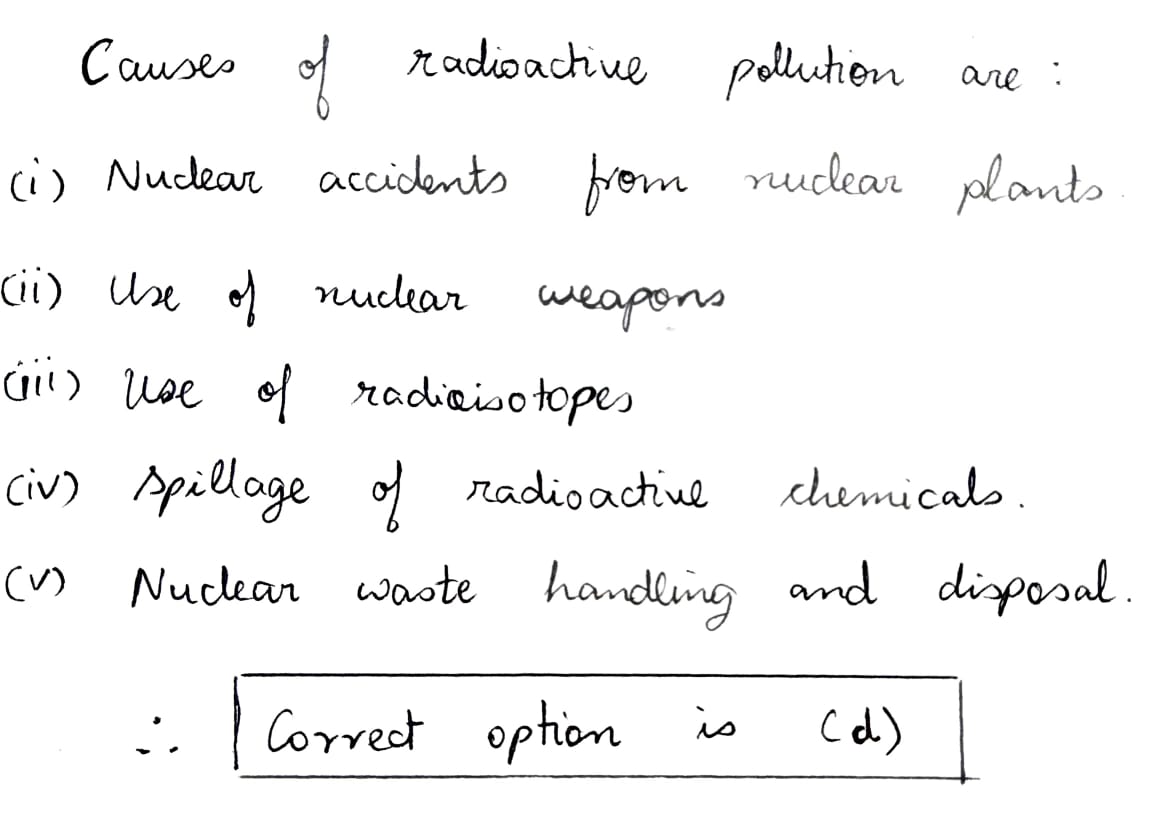 Causes of radioactive pollution are :
(i) Nuclear accidents from nuclear plants.
(ii) Use of nuclear weapons
(iii) Use of radioisotopes
(iv) Spillage of radioactive chemicals.
(v) Nuclear waste handling and disposal.
∴ Correct option is (d)